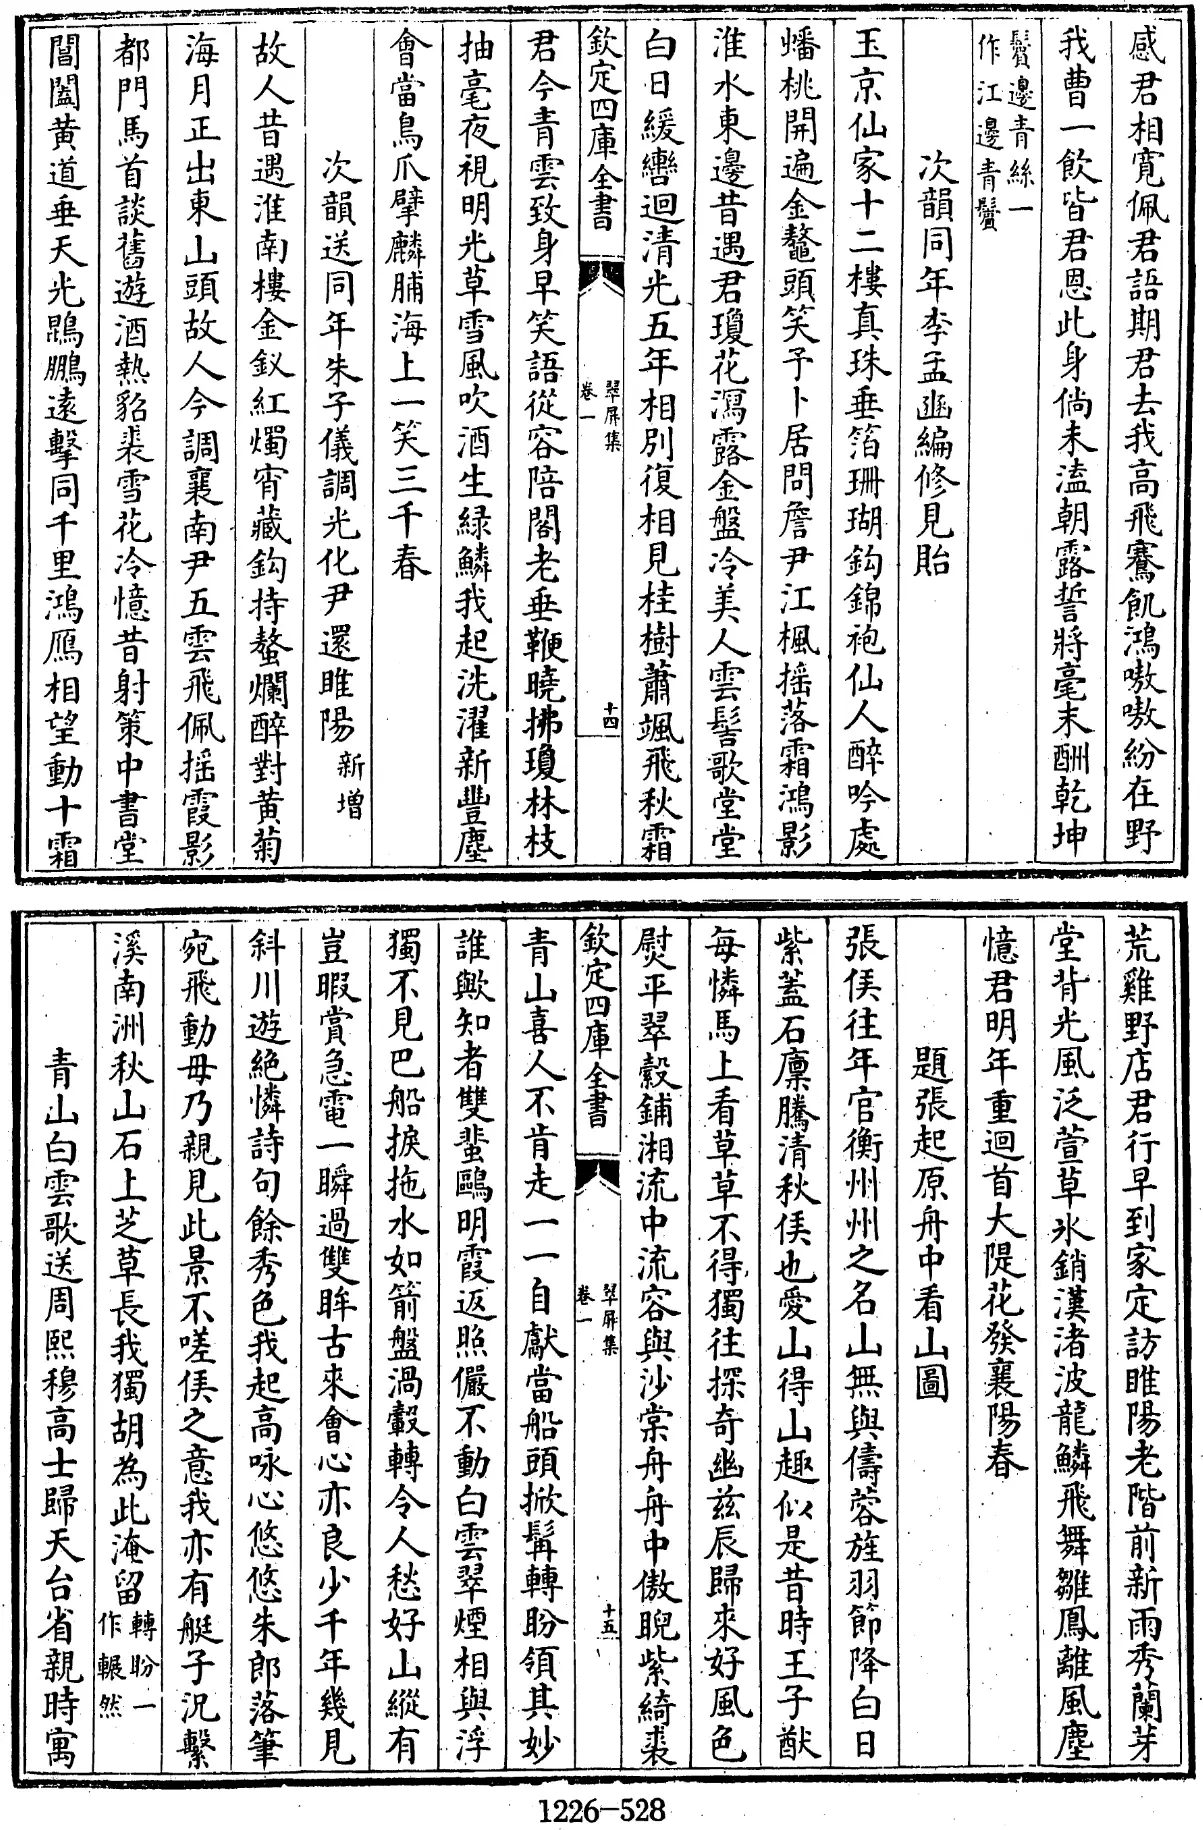 感君相寛佩君語期君去我高飛騫飢鴻嗷嗷紛在野
我曹一飲皆君恩此身倘未溘朝露誓將毫末酬乾坤
鬢邊青絲一
作江邊青鬢
次韻同年李孟豳編修見貽
玉京仙家十二樓真珠垂箔珊瑚鈎錦袍仙人醉吟處
蟠桃開遍金鼇頭笑予卜居問詹尹江楓摇落霜鴻影
淮水東邊昔遇君瓊花瀉露金盤冷美人雲髻歌堂堂
白日緩轡迴清光五年相別復相見桂樹蕭颯飛秋霜
欽定四庫全書
翠屏集
卷一
十四
君今青雲致身早笑語從容陪閣老垂鞭曉拂瓊林枝
抽毫夜視明光草雪風吹酒生緑鱗我起洗濯新豐塵
會當鳥爪擘麟脯海上一笑三千春
次韻送同年朱子儀調光化尹還睢陽新增
故人昔遇淮南樓金釵紅燭宵藏鈎持螯爛醉對黄菊
海月正出東山頭故人今調襄南尹五雲飛佩摇霞影
都門馬首談舊遊酒熱貂裘雪花冷憶昔射策中書堂
閶闔黄道垂天光鵾鵬遠擊同千里鴻鴈相望動十霜
荒雞野店君行早到家定訪睢陽老階前新雨秀蘭芽
堂背光風泛萱草氷銷漢渚波龍鱗飛舞雛鳳離風塵
憶君明年重迴首大隄花發襄陽春
題張起原舟中看山圖
張侯往年官衡州州之名山無與儔蓉旌羽節降白日
紫蓋石廩騰清秋侯也愛山得山趣似是昔時王子猷
每憐馬上看草草不得獨往探奇幽兹辰歸來好風色
熨平翠縠鋪湘流中流容與沙棠舟舟中傲睨紫綺裘
欽定四庫全書
翠屏集
卷一
十五
青山喜人不肯走一一自獻當船頭掀髯轉盼領其妙
誰歟知者雙蜚鷗明霞返照儼不動白雲翠煙相與浮
獨不見巴船捩拖水如箭盤渦轂轉令人愁好山縱有
豈暇賞急電一瞬過雙眸古來會心亦良少千年幾見
斜川遊絶憐詩句餘秀色我起高咏心悠悠朱郎落筆
宛飛動毋乃親見此景不嗟侯之意我亦有艇子況繫
溪南洲秋山石上芝草長我獨胡為此淹留
轉盼一
作輾然
青山白雲歌送周熙穆高士歸天台省親時寓
1226-528